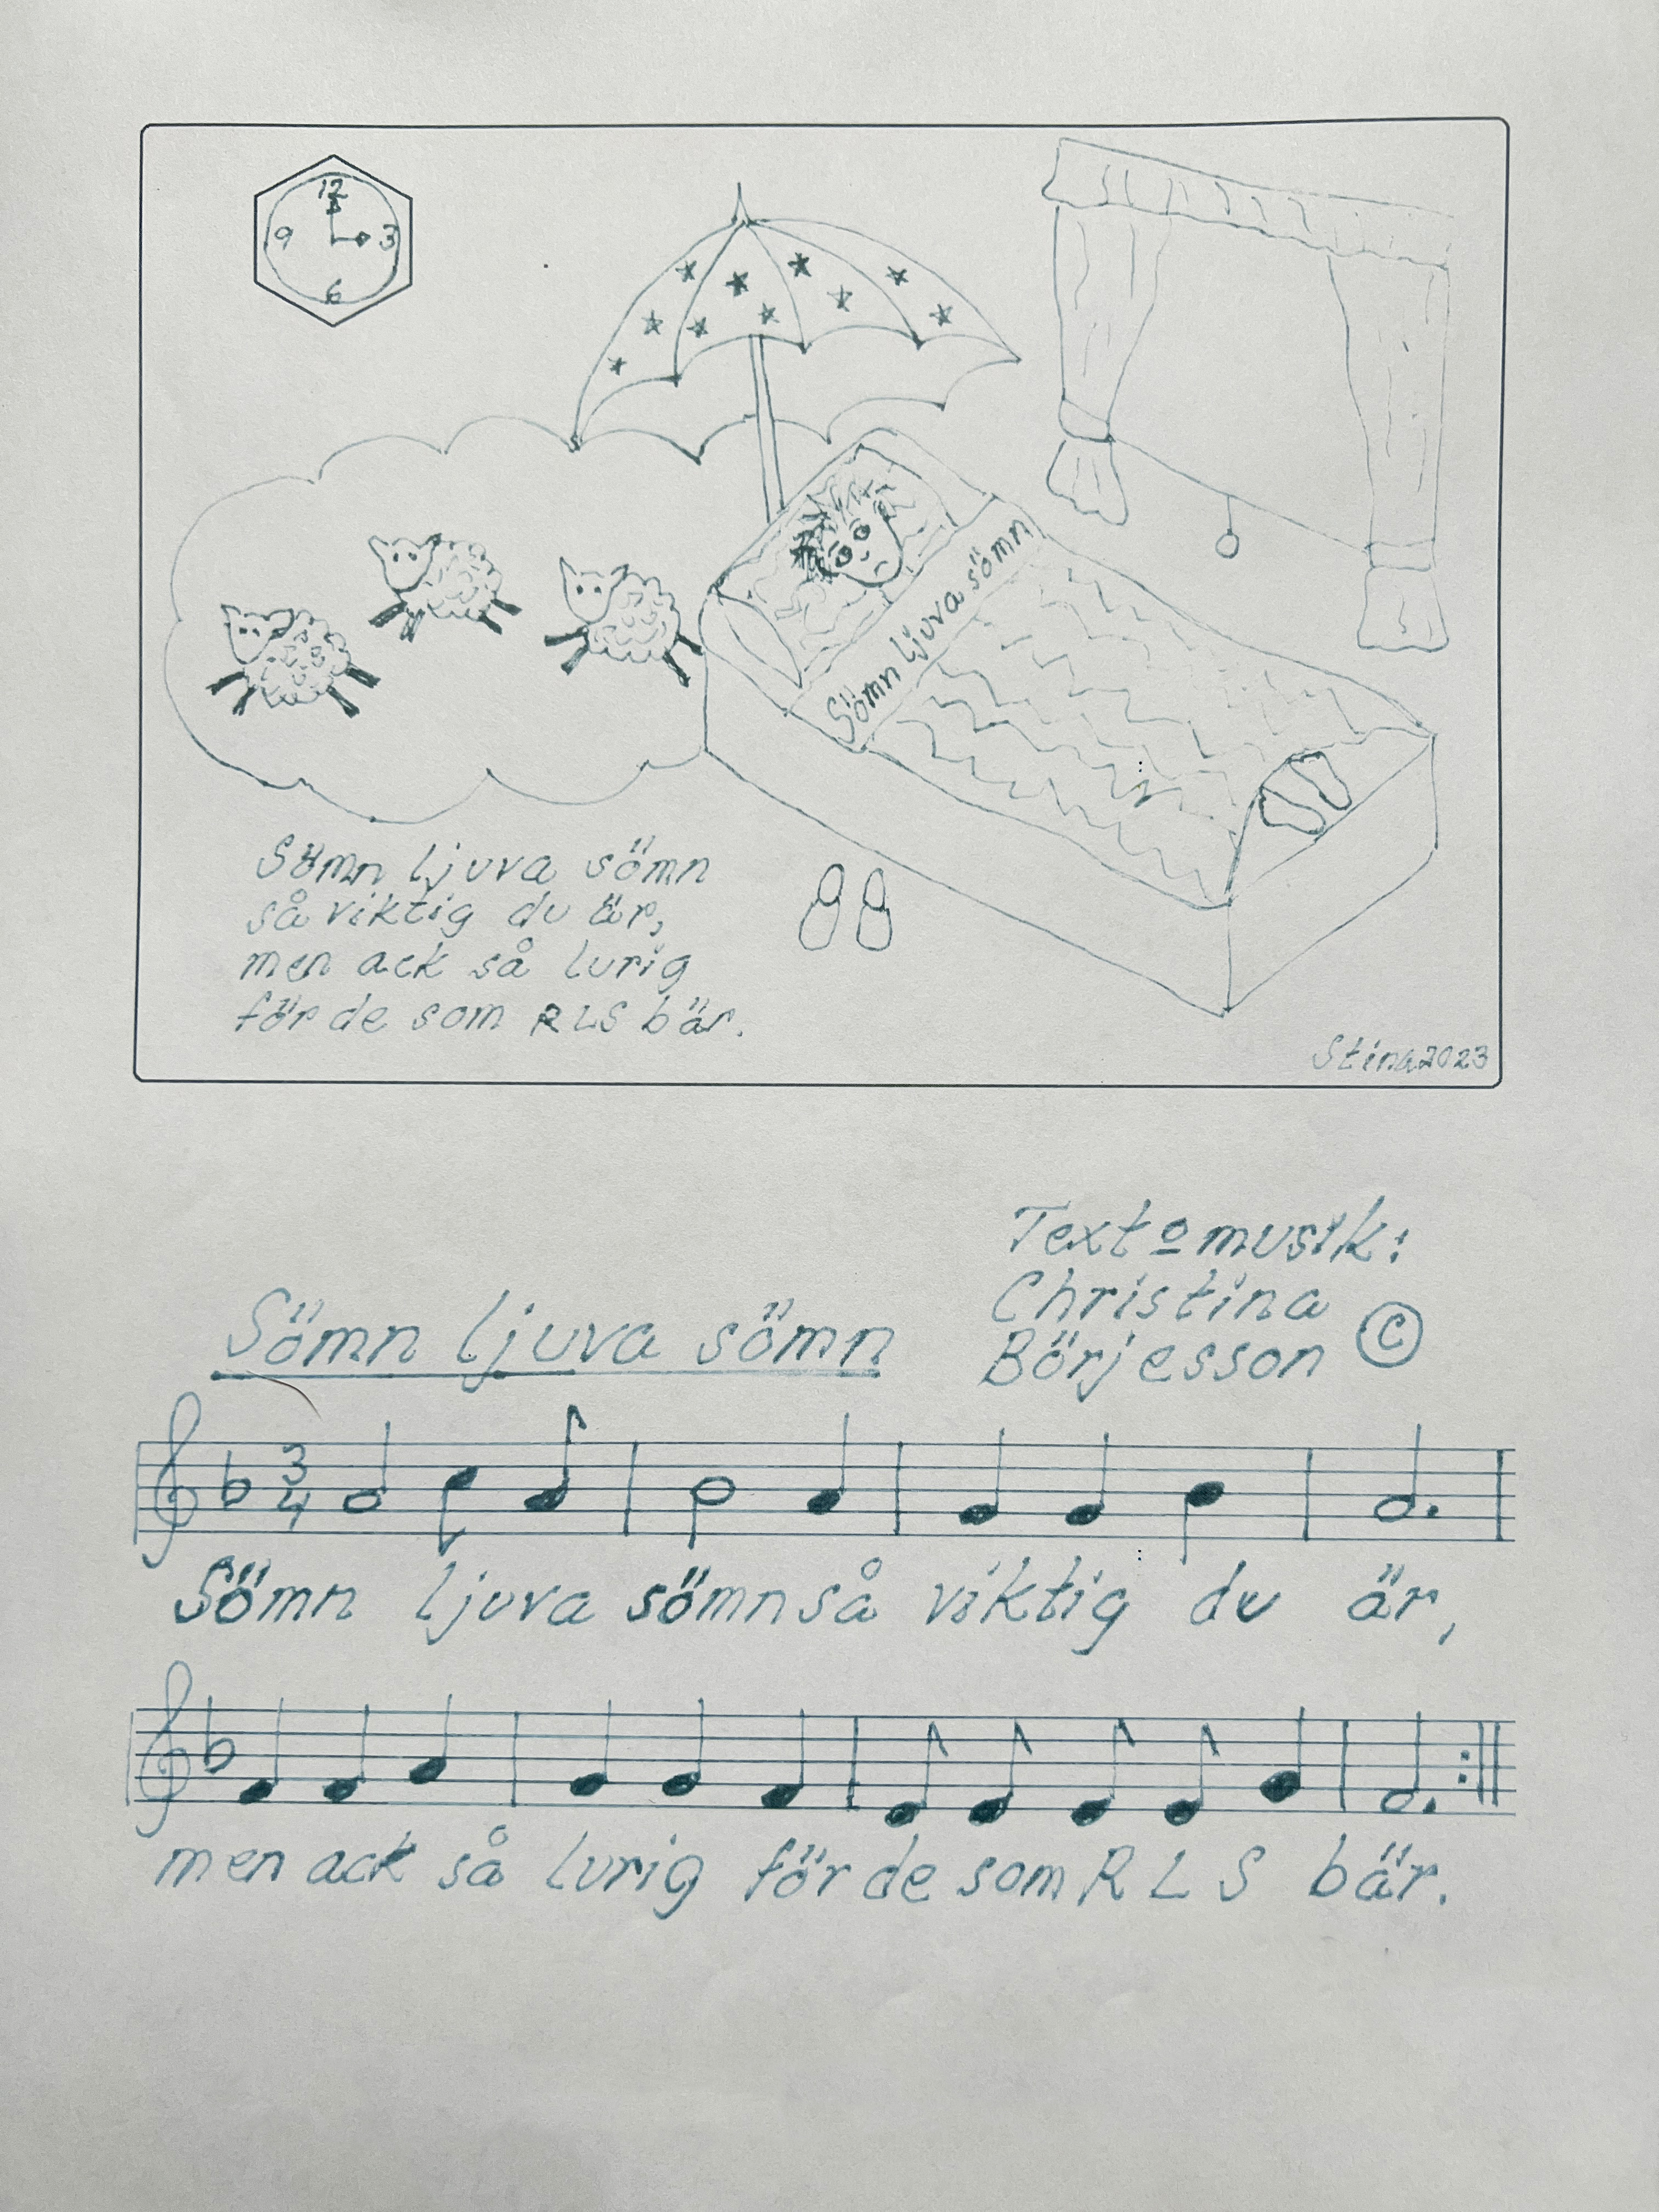 12
9 3
6
Sömn ljuva sömn
Sömn ljuva sömn
så viktig du är,
men ack så lurig
för de som RLS bär.
Stina 2023
Text o musik:
Christina
Börjesson ©
Sömn ljuva sömn
3
4
Sömn ljuva sömn så viktig du är,
men ack så lurig för de som R L S bär.